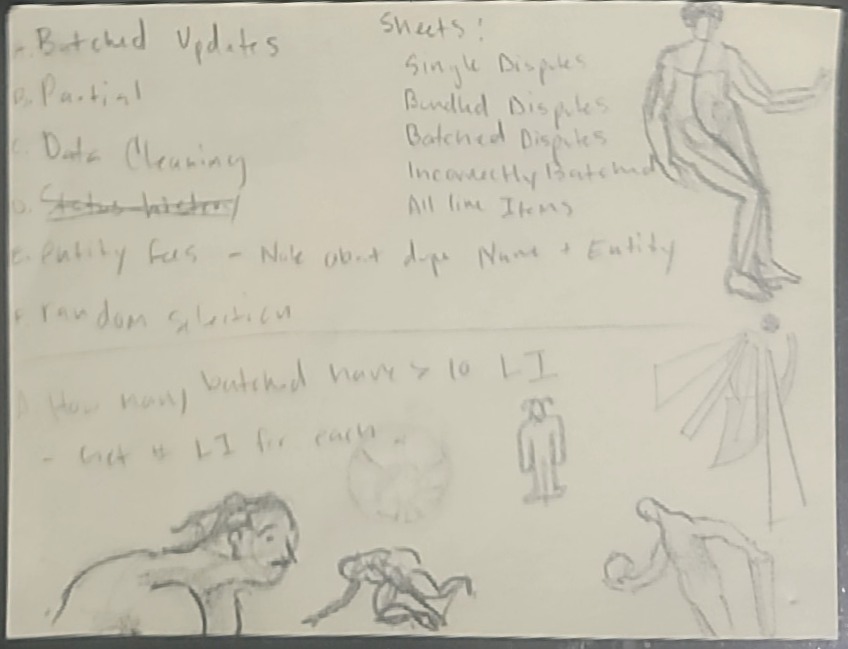 A. Batched Updates
B. Partial
C. Data Cleaning
D. Status history
E. Entity fees - Note about dupe Name + Entity
F. random selection
Sheets!
Single Disputes
Bundled Disputes
Batched Disputes
Incorrectly Batched
All line Items
D. How many batched have > 10 LI
- Get # LI for each